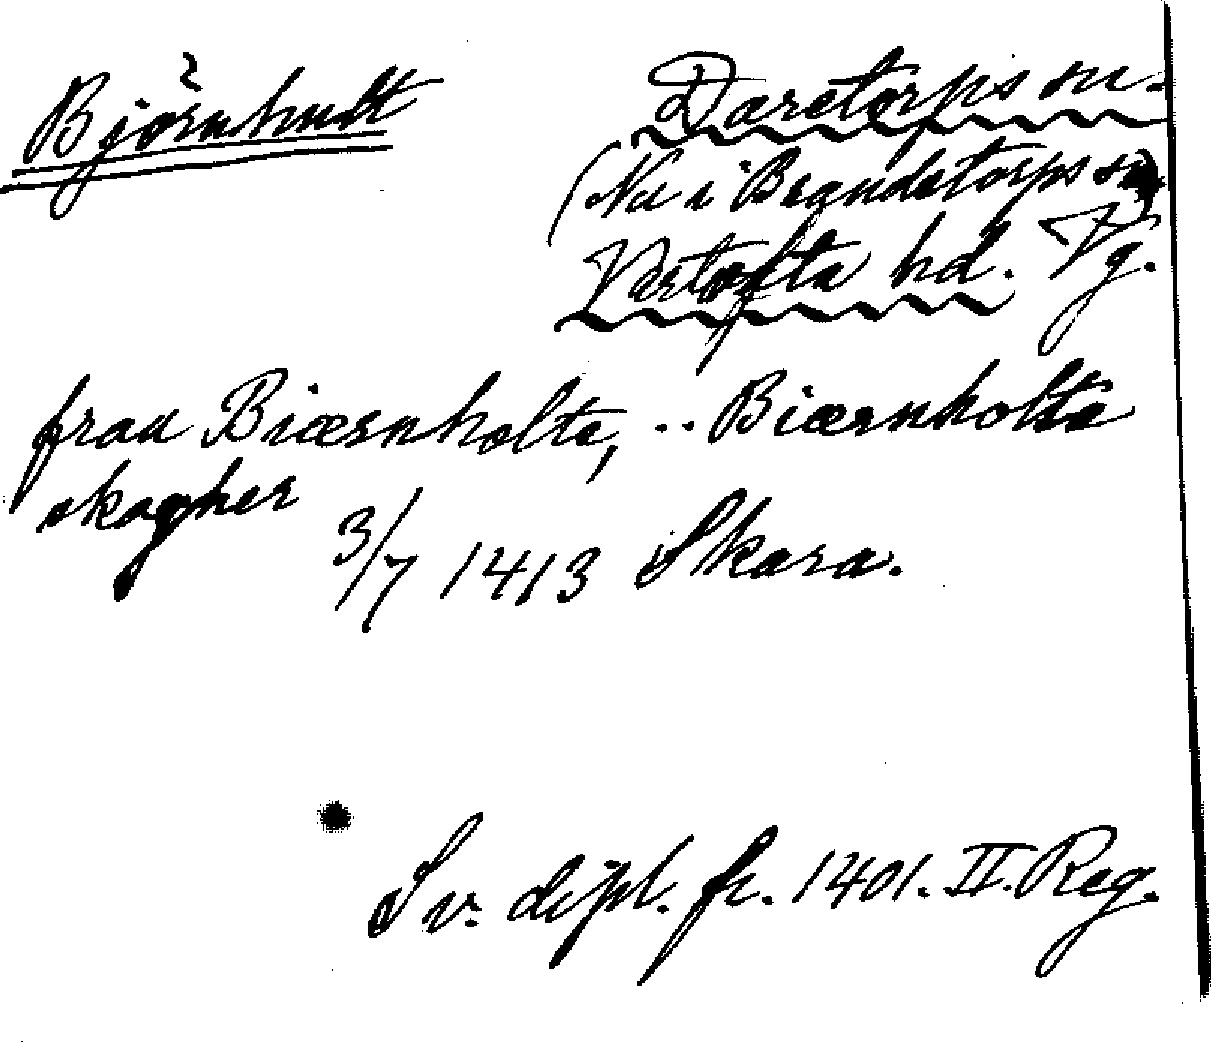 Björnhult
Daretorps sn.
(Nu i Brandstorps sn)
Vartofta hd. Vg.
fran Biærnholte, .. Biærnholta
skogher
3/7 1413 Skara.
Sv. dipl. fr. 1401. II. Reg.